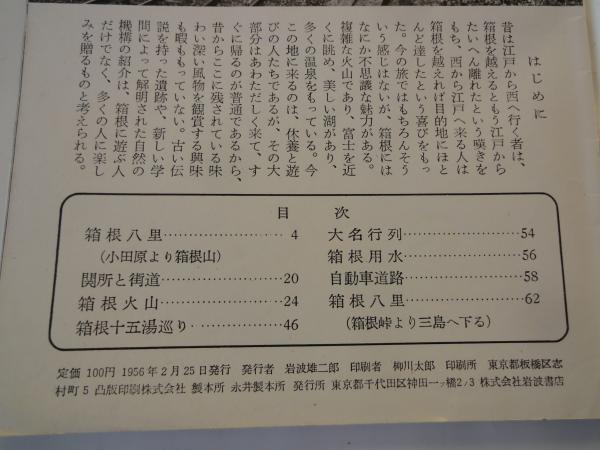 はじめに
昔は江戸から西へ行く者は、
箱根を越えるともう江戸から
たいへん離れたという嘆きを
もち、西から江戸へ来る人は
箱根を越えれば目的地にほと
んど達したという喜びをもっ
た。今の旅ではもちろんそう
いう感じはないが、箱根には
なにか不思議な魅力がある。
複雑な火山であり、富士を近
くに眺め、美しい湖があり、
多くの温泉をもっている。今
この地に来るのは、休養と遊
びの人たちであるが、その大
部分はあわただしく来て、す
ぐに帰るのが普通であるから、
昔からここに残されている味
わい深い風物を観賞する興味
も暇ももっていない。古い伝
説を持った遺跡や、新しい学
問によって解明された自然の
機構の紹介は、箱根に遊ぶ人
だけでなく、多くの人に楽し
みを贈るものと考えられる。
目次
箱根八里……………4
(小田原より箱根山)
関所と街道……………20
箱根火山……………24
箱根十五湯巡り……………46
大名行列……………54
箱根用水……………56
自動車道路……………58
箱根八里……………62
(箱根峠より三島へ下る)
定価 100円 1956年2月25日発行 発行者 岩波雄二郎 印刷者 柳川太郎 印刷所 東京都板橋区志
村町5 凸版印刷株式会社 製本所 永井製本所 発行所 東京都千代田区神田一ッ橋2ノ3 株式会社岩波書店